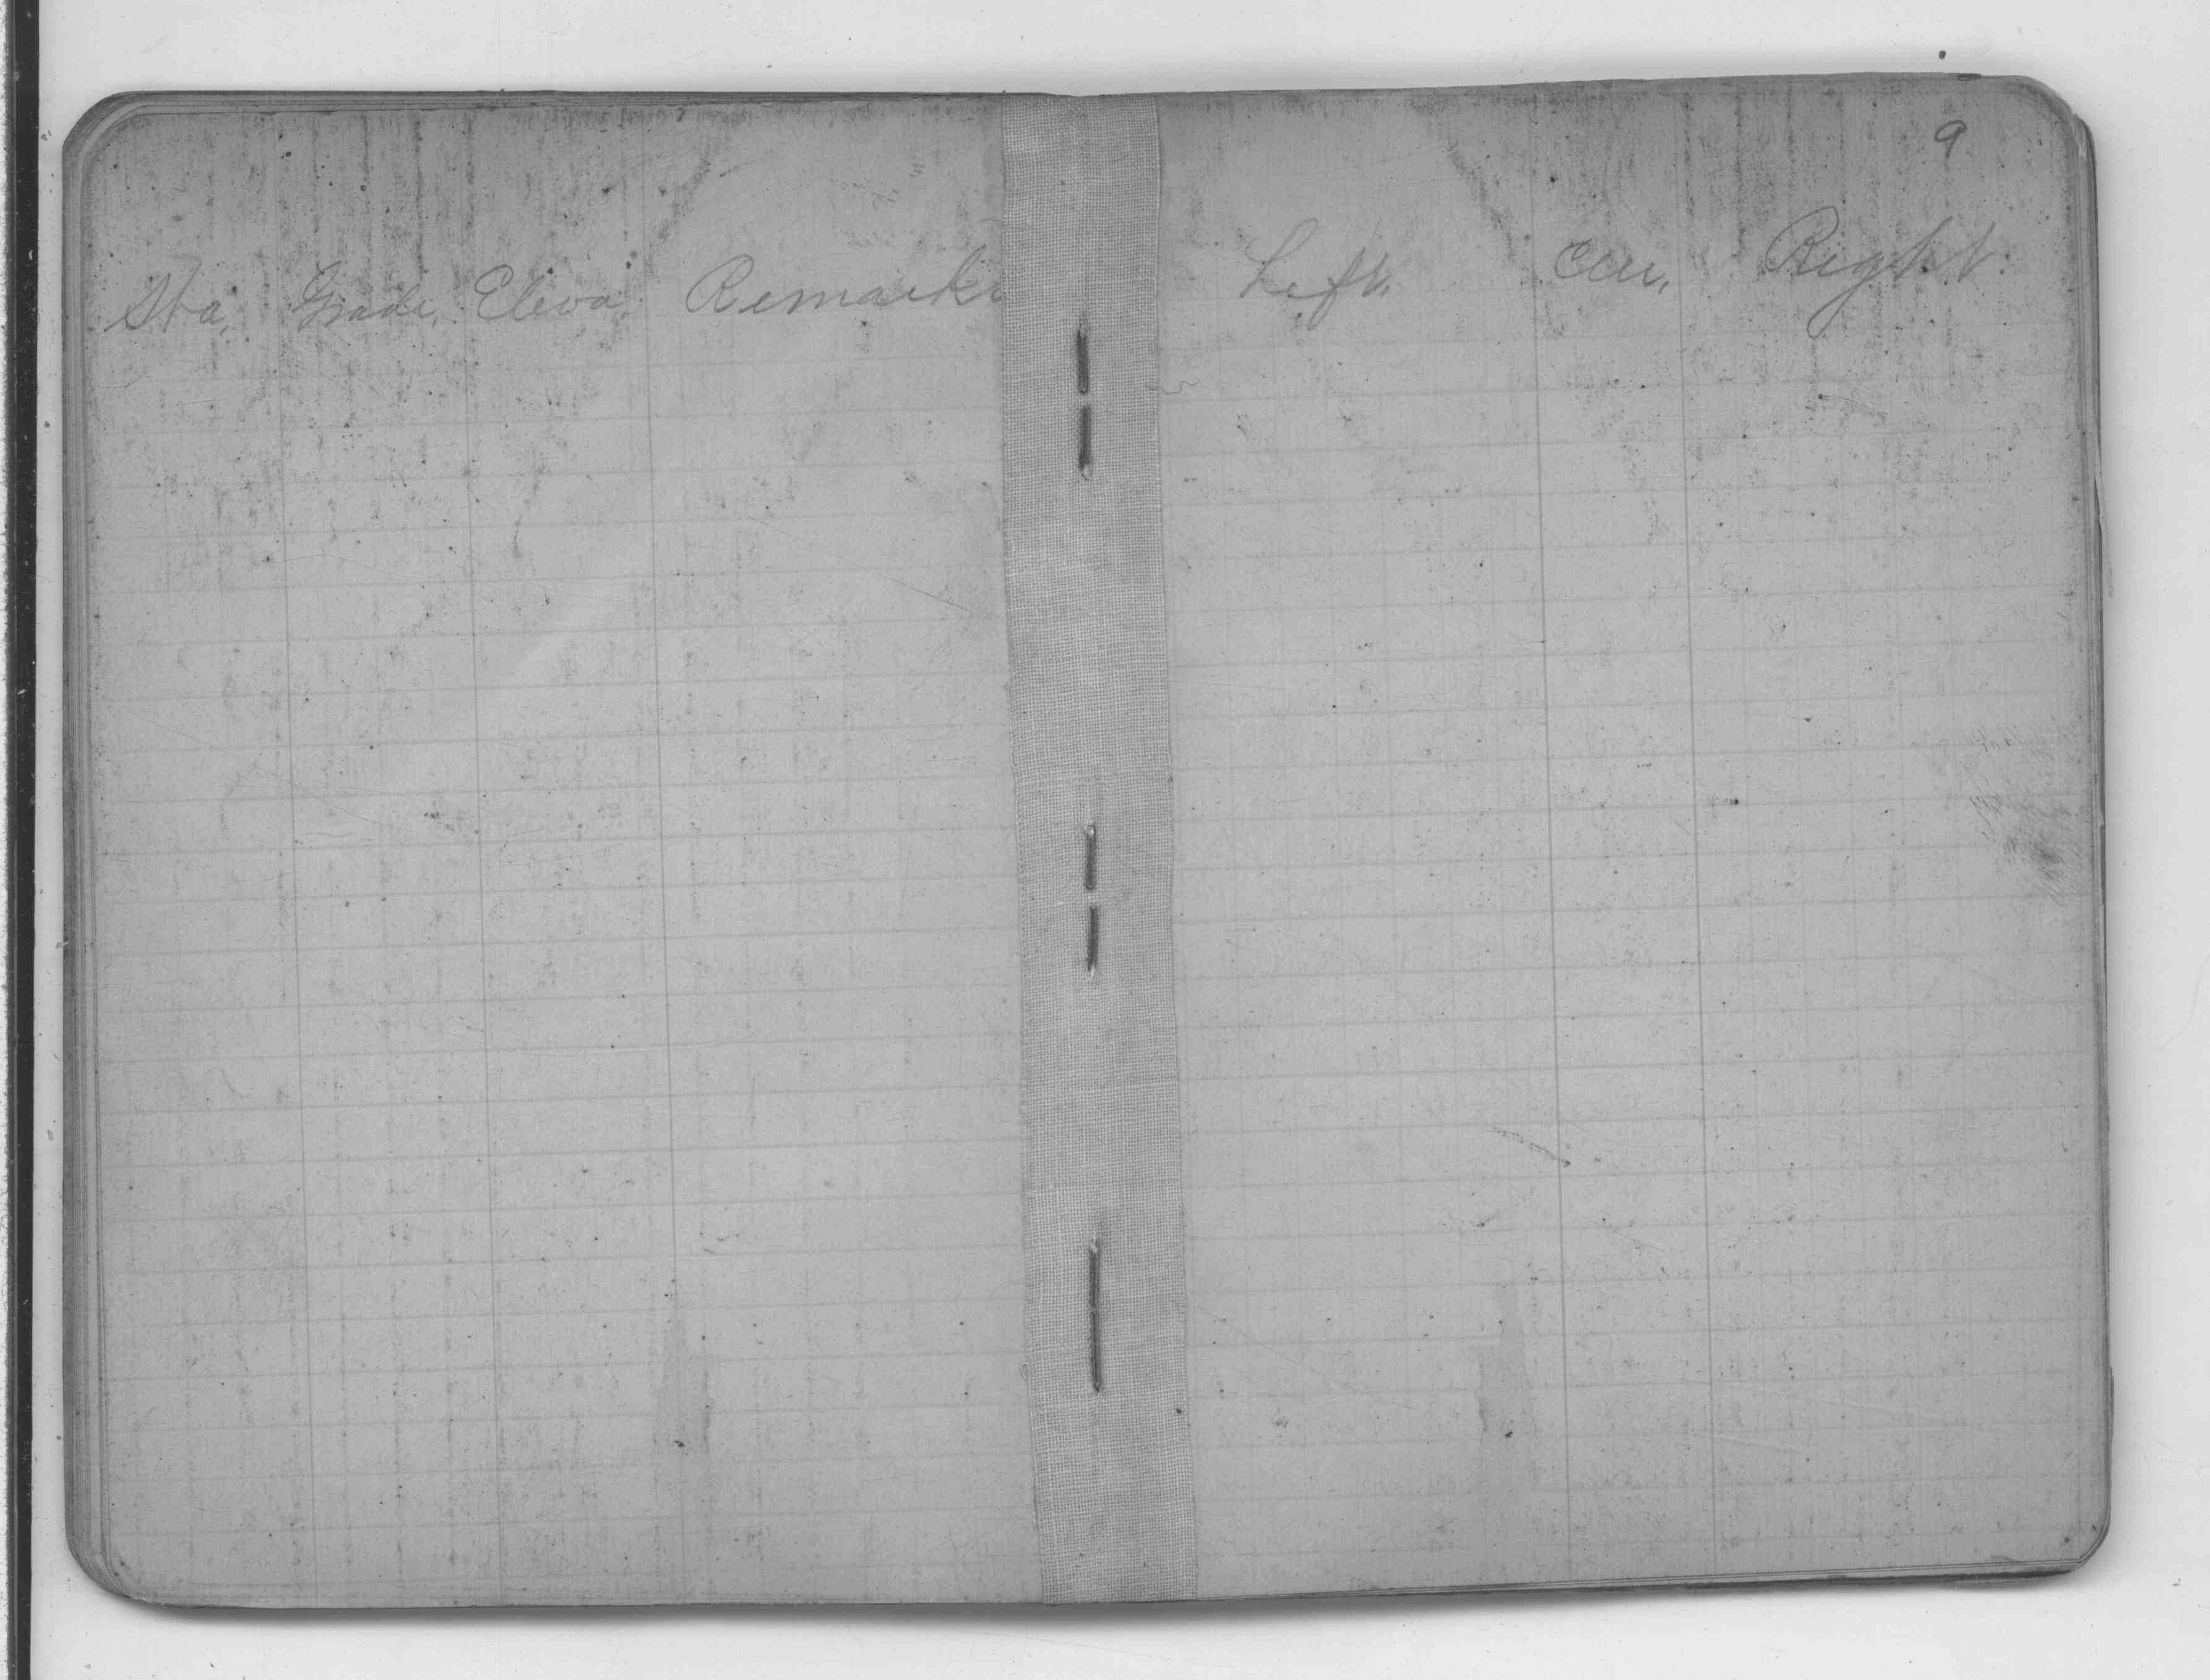 9
Sta. Grade. Eleva. Remarks
Left. Cen. Right.